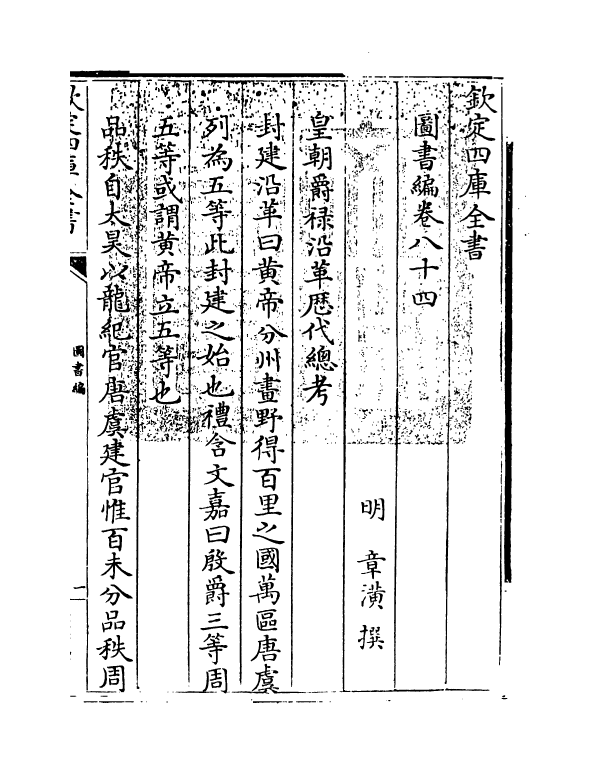 欽定四庫全書
圖書編卷八十四
明 章潢 撰
皇朝爵禄沿革歴代總考
封建沿革曰黄帝分州畫野得百里之國萬區唐虞
列為五等此封建之始也禮含文嘉曰殷爵三等周
五等或謂黄帝立五等也
品秩自太昊以龍紀官唐虞建官惟百未分品秩周
欽定四庫全書
圖書編